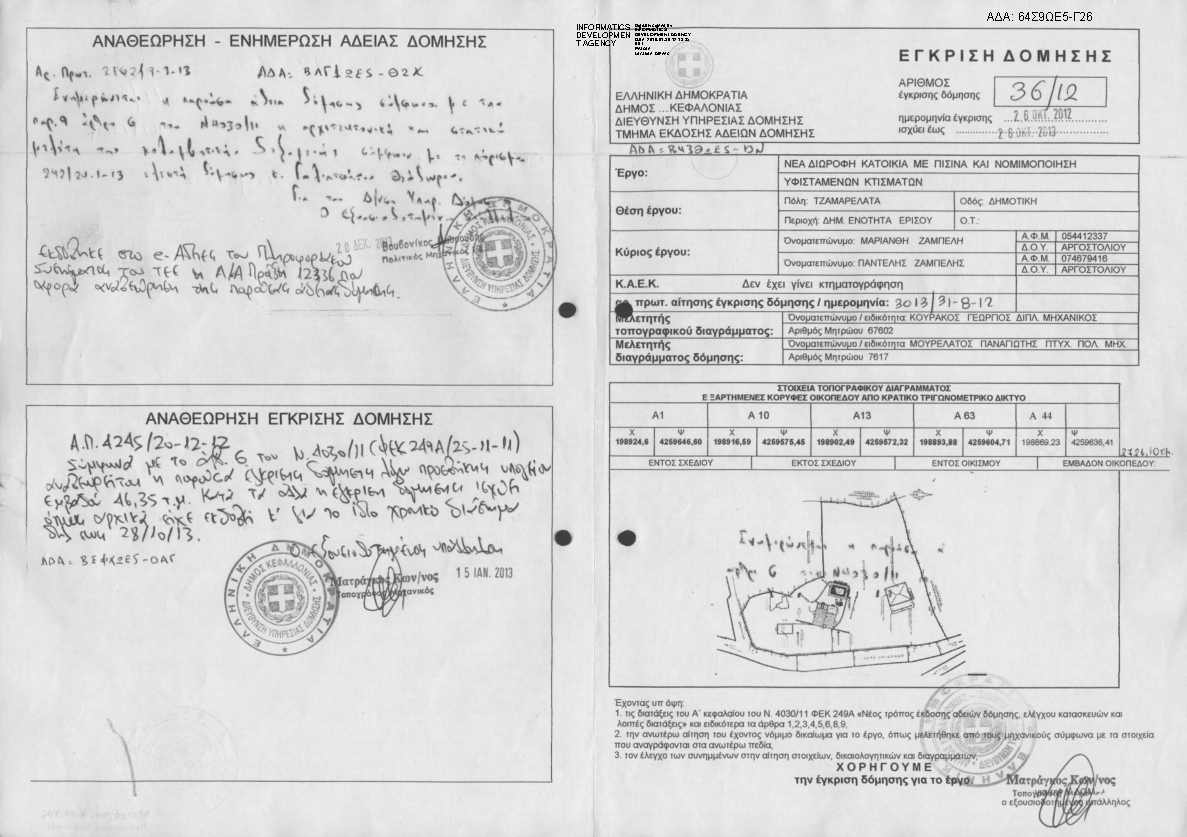 ΑΔΑ: 64Σ9ΩΕ5-Γ26
INFORMATICS
DEVELOPMEN
T AGENCY
ΑΝΑΘΕΩΡΗΣΗ - ΕΝΗΜΕΡΩΣΗ ΑΔΕΙΑΣ ΔΟΜΗΣΗΣ
Αρ. Πρωτ. 2162/7-1-13 ΑΔΑ: ΒΛΓ1ΩΕ5-Θ2Χ
Ενημερώνεται η παρούσα άδεια δόμησης σύμφωνα με την
παρ. 9 άρθρο 6 του Ν4030/11 η αρχιτεκτονική και στατική
μελέτη της κολυμβητικής δεξαμενής σύμφωνα με το πόρισμα
ελεγκτή δόμησης κ.
20 ΔΕΚ. 2013
Εκδόθηκε στο e-Άδειες του Πληροφοριακού
Συστήματος του ΤΕΕ η Α/Α Πράξη 12336 που
αφορά αναθεώρηση της παρούσας άδειας δόμησης.
ΑΝΑΘΕΩΡΗΣΗ ΕΓΚΡΙΣΗΣ ΔΟΜΗΣΗΣ
Α.Π. 4245/20-12-12
Σύμφωνα με το άρθ. 6 του Ν. 4030/11 (ΦΕΚ 249Α/25-11-11)
αναθεωρείται η παρούσα έγκριση δόμησης λόγω προσθήκης υπογείου
εμβαδού 46,35 τ.μ. Κατά τα άλλα η έγκριση δόμησης ισχύει
όπως αρχικά είχε εκδοθεί κ' για το ίδιο χρονικό διάστημα
δλδ έως 28/10/13.
ΑΔΑ: ΒΕΦΧΩΕ5-ΟΑΓ
Ο εξουσιοδοτημένος υπάλληλος
Ματράγκος Κων/νος
Τοπογράφος Μηχανικός
15 ΙΑΝ. 2013
ΕΛΛΗΝΙΚΗ ΔΗΜΟΚΡΑΤΙΑ
ΔΗΜΟΣ ΚΕΦΑΛΛΟΝΙΑΣ
ΔΙΕΥΘΥΝΣΗ ΥΠΗΡΕΣΙΑΣ ΔΟΜΗΣΗΣ
ΕΓΚΡΙΣΗ ΔΟΜΗΣΗΣ
ΑΡΙΘΜΟΣ
έγκρισης δόμησης 36/12
ημερομηνία έγκρισης 26 ΟΚΤ. 2012
ισχύει έως 26 ΟΚΤ. 2013
ΕΛΛΗΝΙΚΗ ΔΗΜΟΚΡΑΤΙΑ
ΔΗΜΟΣ ...ΚΕΦΑΛΟΝΙΑΣ
ΔΙΕΥΘΥΝΣΗ ΥΠΗΡΕΣΙΑΣ ΔΟΜΗΣΗΣ
ΤΜΗΜΑ ΕΚΔΟΣΗΣ ΑΔΕΙΩΝ ΔΟΜΗΣΗΣ
Έργο: ΝΕΑ ΔΙΩΡΟΦΗ ΚΑΤΟΙΚΙΑ ΜΕ ΠΙΣΙΝΑ ΚΑΙ ΝΟΜΙΜΟΠΟΙΗΣΗ
ΥΦΙΣΤΑΜΕΝΩΝ ΚΤΙΣΜΑΤΩΝ
Θέση έργου: Πόλη: ΤΖΑΜΑΡΕΛΑΤΑ Οδός: ΔΗΜΟΤΙΚΗ
Περιοχή: ΔΗΜ. ΕΝΟΤΗΤΑ ΕΡΙΣΟΥ Ο.Τ.:
Κύριος έργου: Όνοματεπώνυμο: ΜΑΡΙΑΝΘΗ ΖΑΜΠΕΛΗ Α.Φ.Μ. 054412337
Δ.Ο.Υ. ΑΡΓΟΣΤΟΛΙΟΥ
Όνοματεπώνυμο: ΠΑΝΤΕΛΗΣ ΖΑΜΠΕΛΗΣ Α.Φ.Μ. 074679416
Δ.Ο.Υ. ΑΡΓΟΣΤΟΛΙΟΥ
Κ.Α.Ε.Κ. Δεν έχει γίνει κτηματογράφηση
πρωτ. αίτησης έγκρισης δόμησης / ημερομηνία: 3013/31-8-12
Μελετητής
τοπογραφικού διαγράμματος: Όνοματεπώνυμο / ειδικότητα: ΚΟΥΡΑΚΟΣ ΓΕΩΡΓΙΟΣ ΔΙΠΛ. ΜΗΧΑΝΙΚΟΣ
Αριθμός Μητρώου 67602
Μελετητής
διαγράμματος δόμησης: Όνοματεπώνυμο / ειδικότητα ΜΟΥΡΕΛΑΤΟΣ ΠΑΝΑΓΙΩΤΗΣ ΠΤΥΧ. ΠΟΛ. ΜΗΧ.
Αριθμός Μητρώου 7617
ΣΤΟΙΧΕΙΑ ΤΟΠΟΓΡΑΦΙΚΟΥ ΔΙΑΓΡΑΜΜΑΤΟΣ
Ε ΞΑΡΤΗΜΕΝΕΣ ΚΟΡΥΦΕΣ ΟΙΚΟΠΕΔΟΥ ΑΠΟ ΚΡΑΤΙΚΟ ΤΡΙΓΩΝΟΜΕΤΡΙΚΟ ΔΙΚΤΥΟ
Α1 Α 10 Α13 Α 63 Α 44
Χ Ψ Χ Ψ Χ Ψ Χ Ψ Χ Ψ
198924,6 4259646,60 198916,59 4259575,45 198902,49 4259572,32 198893,88 4259604,71 198869.23 4259636,41
ΕΝΤΟΣ ΣΧΕΔΙΟΥ ΕΚΤΟΣ ΣΧΕΔΙΟΥ ΕΝΤΟΣ ΟΙΚΙΣΜΟΥ ΕΜΒΑΔΟΝ ΟΙΚΟΠΕΔΟΥ:
Έχοντας υπ όψη:
1. τις διατάξεις του Α΄ κεφαλαίου του Ν. 4030/11 ΦΕΚ 249Α «Νέος τρόπος έκδοσης αδειών δόμησης, ελέγχου κατασκευών και
λοιπές διατάξεις» και ειδικότερα τα άρθρα 1,2,3,4,5,6,8,9,
2. την ανωτέρω αίτηση του έχοντος νόμιμο δικαίωμα για το έργο, όπως μελετήθηκε από τους μηχανικούς σύμφωνα με τα στοιχεία
που αναγράφονται στα ανωτέρω πεδία,
3. τον έλεγχο των συνημμένων στην αίτηση στοιχείων, δικαιολογητικών και διαγραμμάτων,
ΧΟΡΗΓΟΥΜΕ
την έγκριση δόμησης για το έργο.
Ματράγκος Κων/νος
ο εξουσιοδοτημένος υπάλληλος